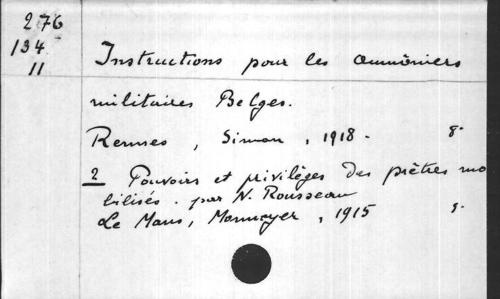 276
134
11
Instructions pour les aumôniers
militaires Belges.
Rennes, Simon, 1918. 8°
2 Pouvoirs et privilèges des prêtres mo
bilisés. par N. Rousseau
Le Mans, Monnoyer, 1915 8°